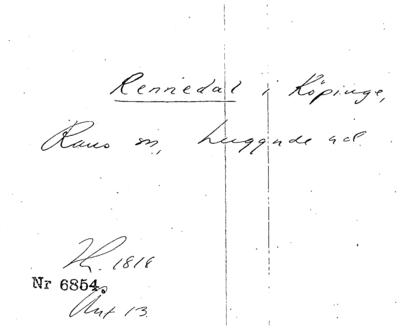 Rennedal i Köpinge,
Raus sn, Luggude hd
Th. 1818
Nr 6854.
Ant 13.